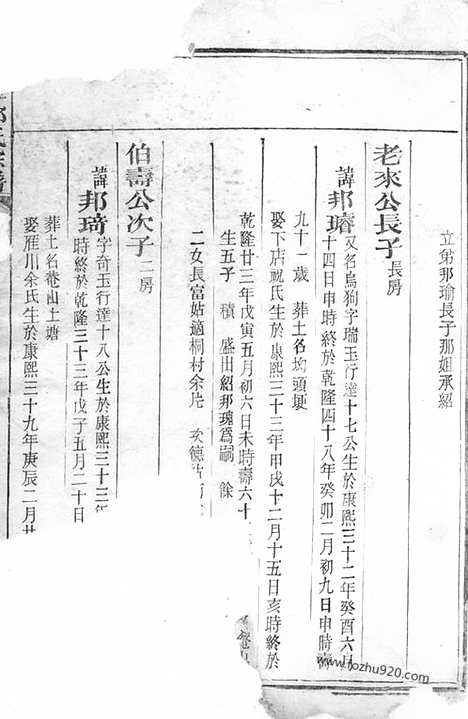 立弟邦瑜長子邦姐承紹
老來公長子長房
諱邦璿又名烏狗字瑞玉行達十七公生於康熙三十二年癸酉六月
十四日申時終於乾隆四十八年癸卯二月初九日申時壽
九十一歲 葬土名坳頭埂
娶下店祝氏生於康熙三十三年甲戌十二月十五日亥時終於
乾隆廿三年戊寅五月初六日未時壽六十
生五子 積 盛出紹邦瑰爲嗣 餘
二女長富姑適桐村余 次德
伯壽公次子二房
諱邦琦字奇玉行達十八公生於康熙三十三年
時終於乾隆三十三年戊子五月二十日
葬土名菴山土塘
娶雁川余氏生於康熙三十九年庚辰二月廿
www.fozhu920.com